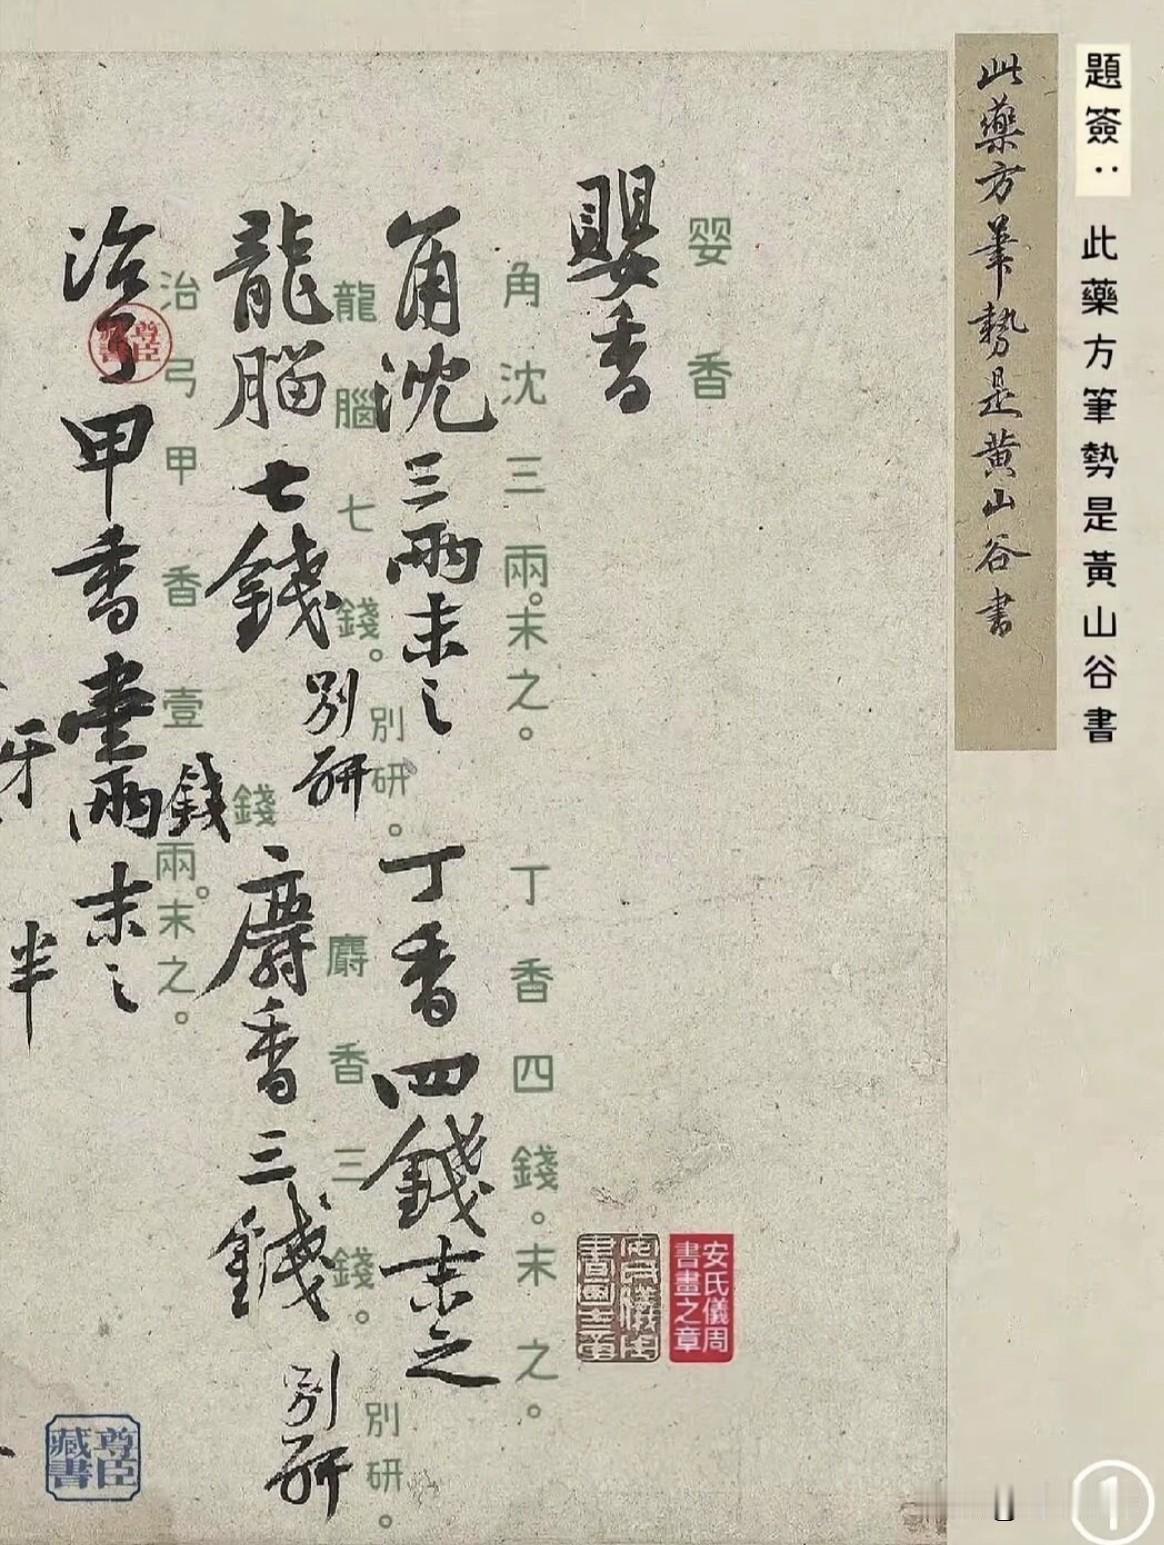 題簽：此藥方筆勢是黃山谷書
此藥方筆勢是黃山谷書
婴香
嬰香
角沈三兩。末之。丁香四錢。末之。
角沈三兩末之丁香四錢末之
龍腦七錢。別研。麝香三錢。別研。
龍腦七錢別研麝香三錢別研
治弓甲香壹錢兩。末之。
治弓甲香壹兩錢末之
牙
半
安氏儀周
書畫之章
安氏儀周
書畫之章
尊臣
藏書
尊臣
藏書
1